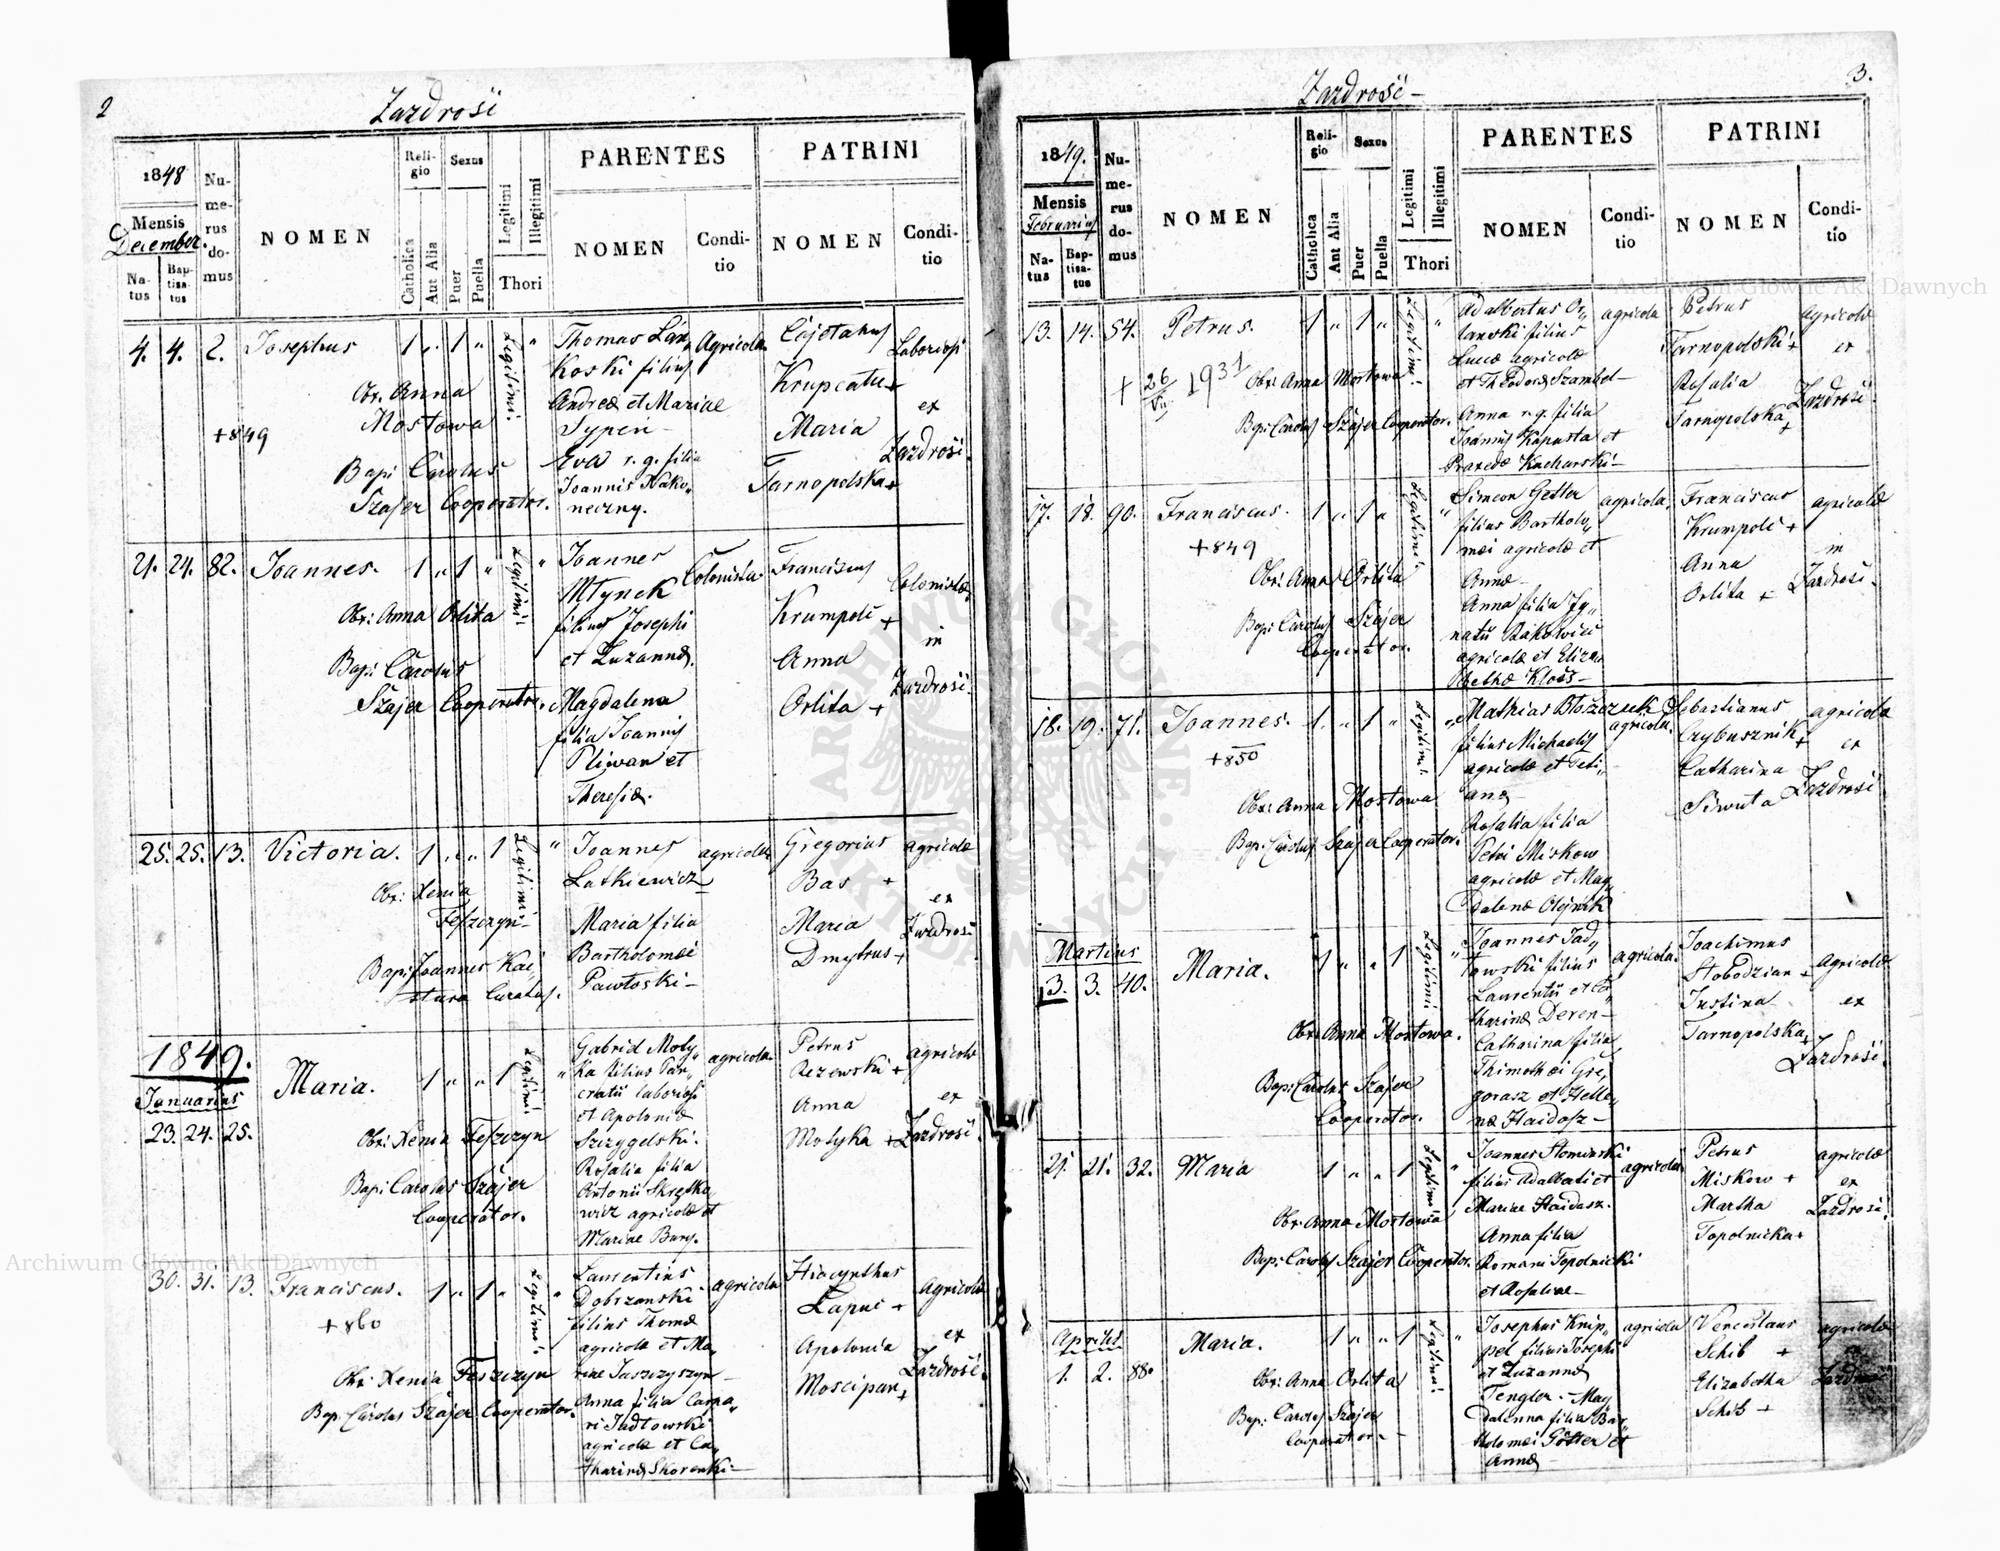 2
Zazdrość
1848
Mensis
December.
Na-
tus
Bap-
tisa-
tus
Nu-
me-
rus
do-
mus
NOMEN
Reli-
gio
Catholica
Aut Alia
Sexus
Puer
Puella
Legitimi
Illegitimi
Thori
PARENTES
NOMEN
Condi-
tio
PATRINI
NOMEN
Condi-
tio
4. 4. 2. Josephus 1 „ 1 „ Legitimi „
Obs. Anna
Mostowa
+849
Bapt: Carolus
Szajer Cooperator.
Thomas
Koski filius
Andreæ et Mariae
Eva r. g. filia
Joannis
Agricola
Cajetanus
+
Maria
Tarnopolska +
Laboriosi
ex
Zazdrość.
21. 24. 82. Joannes. 1 „ 1 „ Legitimi „
Obs: Anna Orlita
Bapt: Carolus
Szajer Cooperator.
Joannes
Młynek
filius Josephi
et Zuzannæ.
Magdalena
filia Joannis
Pliwan et
Theresiæ.
Colonista
Franciscus
Krumpolc +
Anna
Orlita +
Colonistæ
in
Zazdrość.
25. 25. 13. Victoria. 1 „ „ 1 Legitimi „
Obs: Xenia
Feszczyn
Bapt: Joannes
Curatus.
Joannes
Latkiewicz
Maria filia
Bartholomæi
Pawłoski
agricola
Gregorius
Bas +
Maria
Dmytrus +
agricolæ
ex
Zazdrość
1849.
Januarius
23. 24. 25. Maria. 1 „ „ 1 Legitimi „
Obs: Xenia Feszczyn
Bapt: Carolus Szajer
Cooperator.
Gabriel Moty-
ka filius Pan-
cratii laboriosi
et Apoloniæ
Szczygelski.
Rosalia filia
Antonii
wicz agricolæ et
Mariae Bury.
agricola
Petrus
Rezewski +
Anna
Motyka +
agricolæ
ex
Zazdrość.
30. 31. 13. Franciscus. 1 „ 1 „ Legitimi „
+860
Obs: Xenia Feszczyn
Bap: Carolus Szajer Cooperator.
Laurentius
Dobrzanski
filius Thomæ
agricolæ et Ma-
riae
Anna filia
ri Jadłowski
agricolæ et Ca-
tharinæ Skorenki
agricola
Hiacynthus
Lapuc +
Apolonia
Moscipan +
agricolæ
ex
Zazdrość.
Zazdrość
3.
1849.
Mensis
Februarius
Na-
tus
Bap-
tisa-
tus
Nu-
me-
rus
do-
mus
NOMEN
Reli-
gio
Catholica
Aut Alia
Sexus
Puer
Puella
Legitimi
Illegitimi
Thori
PARENTES
NOMEN
Condi-
tio
PATRINI
NOMEN
Condi-
tio
13. 14. 54. Petrus. 1 „ 1 „ Legitimi „
+ 26/VII 1931
Obs: Anna Mostowa
Bap: Carolus Szajer Cooperator.
Adalbertus Or-
lanski filius
Lucæ agricolæ
et Theodoræ Szambel
Anna r. g. filia
Joannis Kapusta et
Praxedæ Kucharski
agricola
Petrus
Tarnopolski +
Rosalia
Tarnopolska +
agricolæ
ex
Zazdrość.
17. 18. 90. Franciscus. 1 „ 1 „ Legitimi „
+849
Obs: Anna Orlita
Bap: Carolus Szajer
Cooperator.
Simeon Getter
filius Bartholo-
mæi agricolæ et
Annæ
Anna filia Ig-
natii Rakowicz
agricolæ et Eliza-
bethæ Kloss
agricola
Franciscus
Krumpolc +
Anna
Orlita +
agricolæ
in
Zazdrość.
18. 19. 71. Joannes. 1. „ 1 „ Legitimi „
+850
Obs: Anna Mostowa
Bap: Carolus Szajer Cooperator.
Mathias Błoszczuk
filius Michaelis
agricolæ et Teti-
anæ
Rosalia filia
Petri Miskow
agricolæ et Mag-
dalenæ Olejnik
agricola
Sebastianus
Czybusznik +
Catharina
Siwuta
agricola
ex
Zazdrość
Martius
3. 3. 40. Maria. 1 „ „ 1 Legitimi „
Obs: Anna Mostowa.
Bap: Carolus Szajer
Cooperator.
Joannes Jad-
łowski filius
Laurentii et Ca-
tharinæ Deren
Catharina filia
Thimothæi Gre-
gorasz et Hele-
næ Haidasz
agricola.
Joachimus
Słobodzian +
Justina
Tarnopolska +
agricolæ
ex
Zazdrość.
21. 21. 32. Maria 1 „ „ 1 Legitimi „
Obs: Anna Mostowa
Bap: Carolus Szajer Cooperator.
Joannes Słominski
filius Adalberti et
Mariae Haidasz.
Anna filia
Romani Topolnicki
et Rosaliae
agricola
Petrus
Miskow +
Martha
Topolnicka +
agricolæ
ex
Zazdrość.
Aprilis
1. 2. 88. Maria. 1 „ „ 1 Legitimi „
Obs: Anna Orlita
Bap: Carolus Szajer
Cooperator
Josephus Knip-
pel filius Josephi
et Zuzannæ
Tengler. Mag-
dalenna filia Bar-
tholomæi Götter et
Annæ
agricola
Venceslaus
Schib +
Elizabetha
Schib +
agricolæ
ex
Zazdrość
Archiwum Główne Akt Dawnych
Archiwum Główne Akt Dawnych
ARCHIWUM GŁÓWNE AKT DAWNYCH